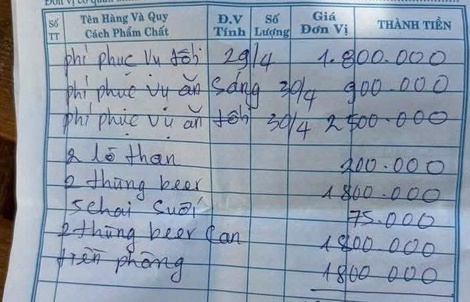 Số TT Tên Hàng Và Quy Cách Phẩm Chất Đ.V Tính Số Lượng Giá Đơn Vị THÀNH TIỀN
phí phục vụ tối 29/4 1.800.000
phí phục vụ ăn sáng 30/4 900.000
phí phục vụ ăn tối 30/4 2500.000
2 lò than 200.000
2 thùng beer 1800.000
5 chai suối 75.000
2 thùng beer Can 1800.000
tiền phòng 1800.000